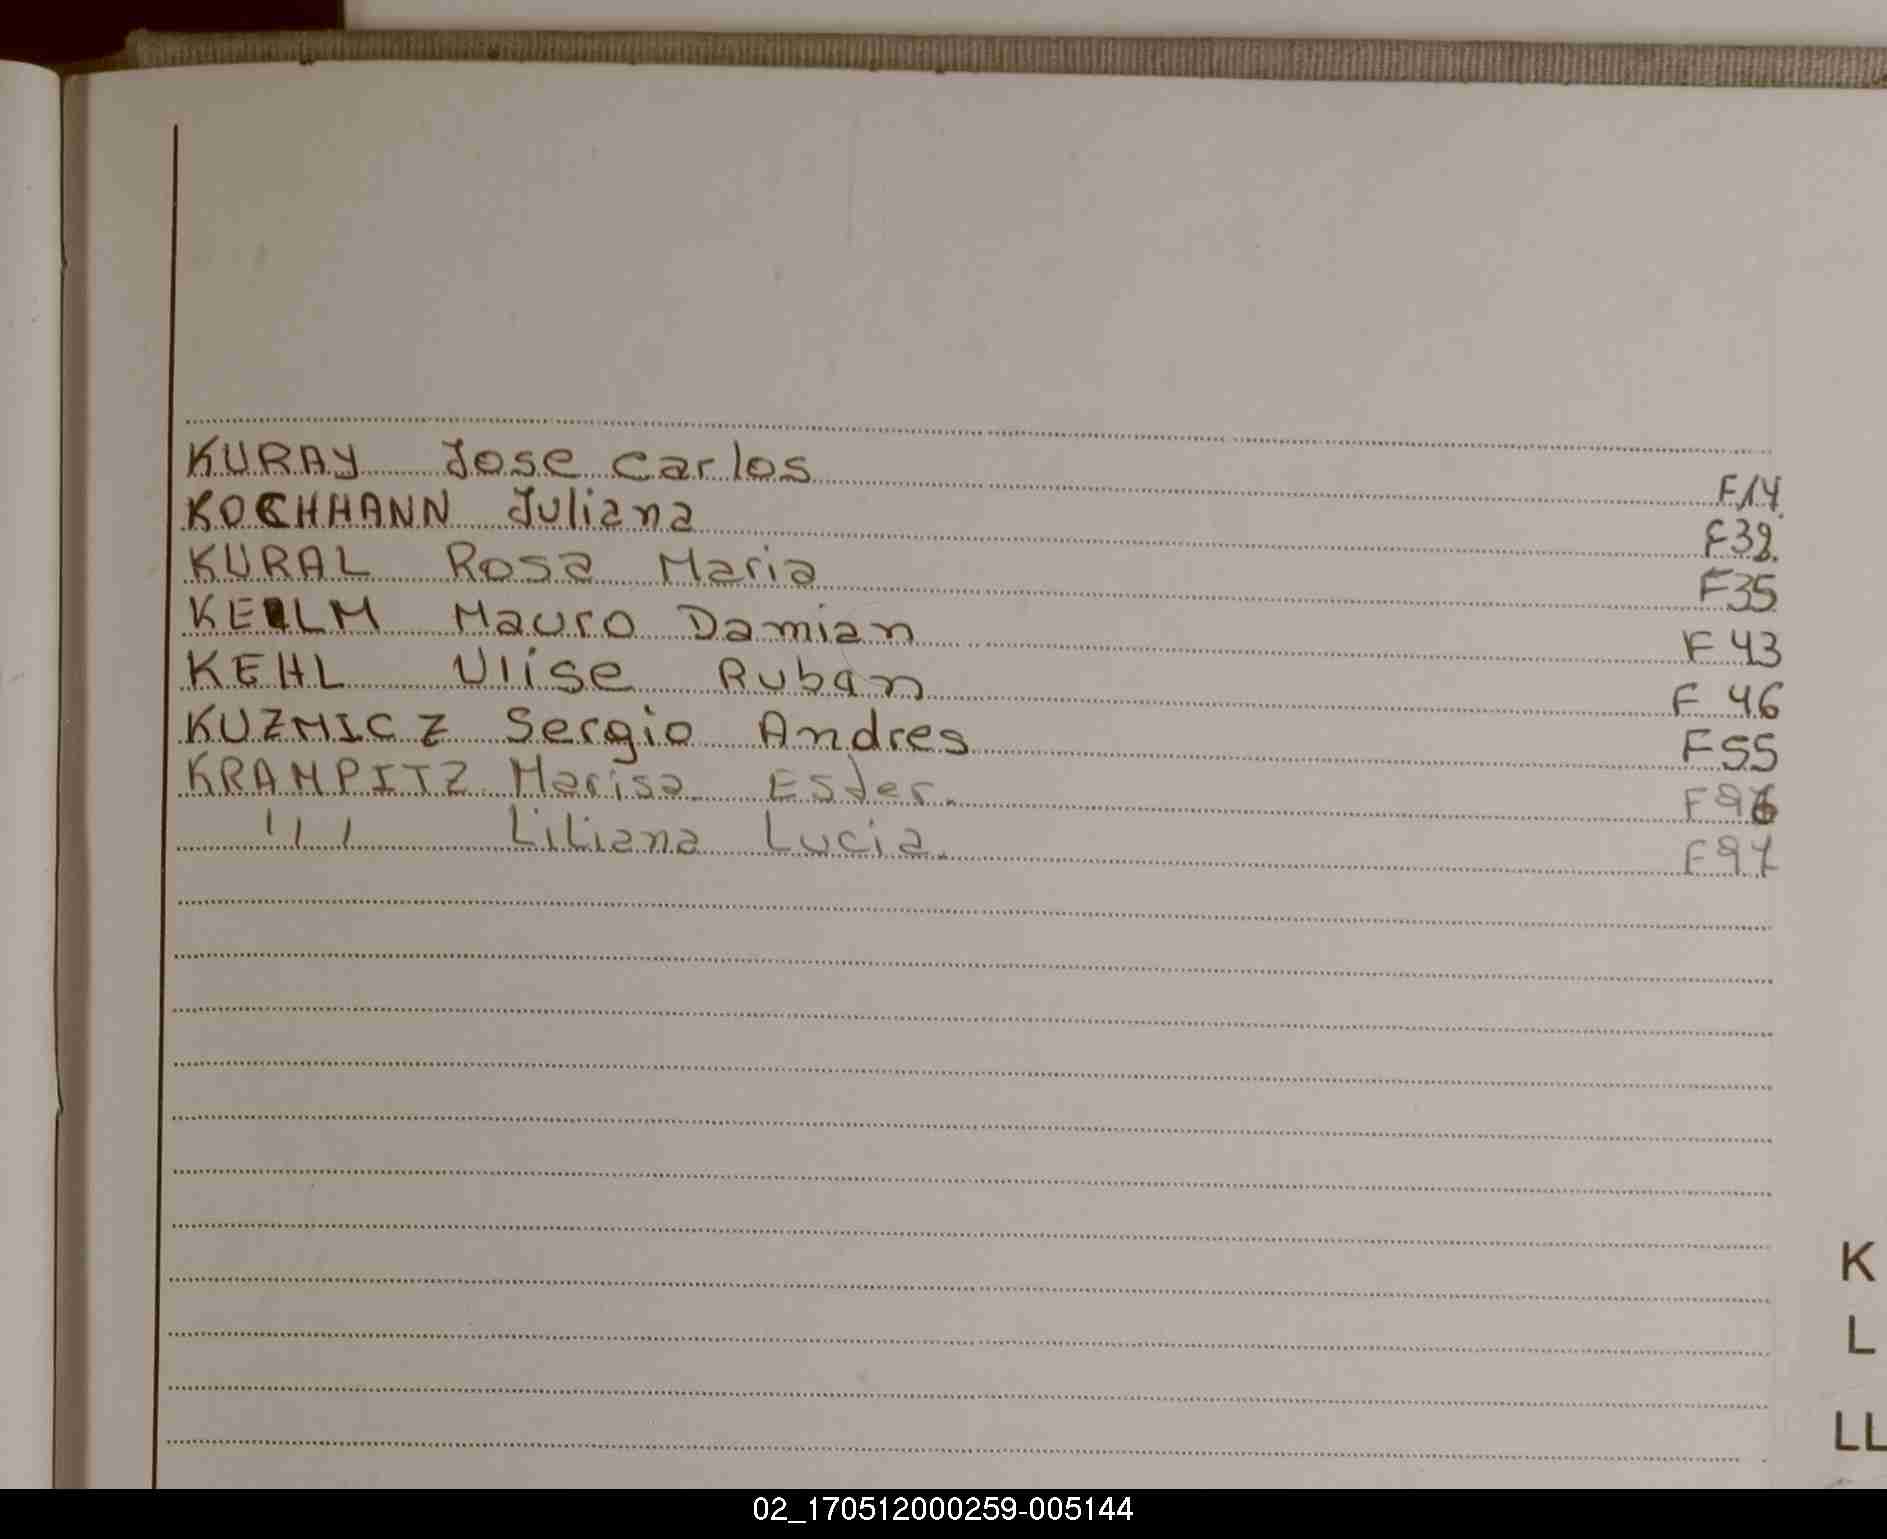 KURAY Jose Carlos F14
KOCHHANN Juliana F38
KURAL Rosa Maria F35
KELLM Mauro Damian F43
KEHL Ulise Ruban F 46
KUZMICZ Sergio Andres F55
KRAMPITZ Marisa Ester. F96
" " Liliana Lucia. F97
K
L
LL
02_170512000259-005144